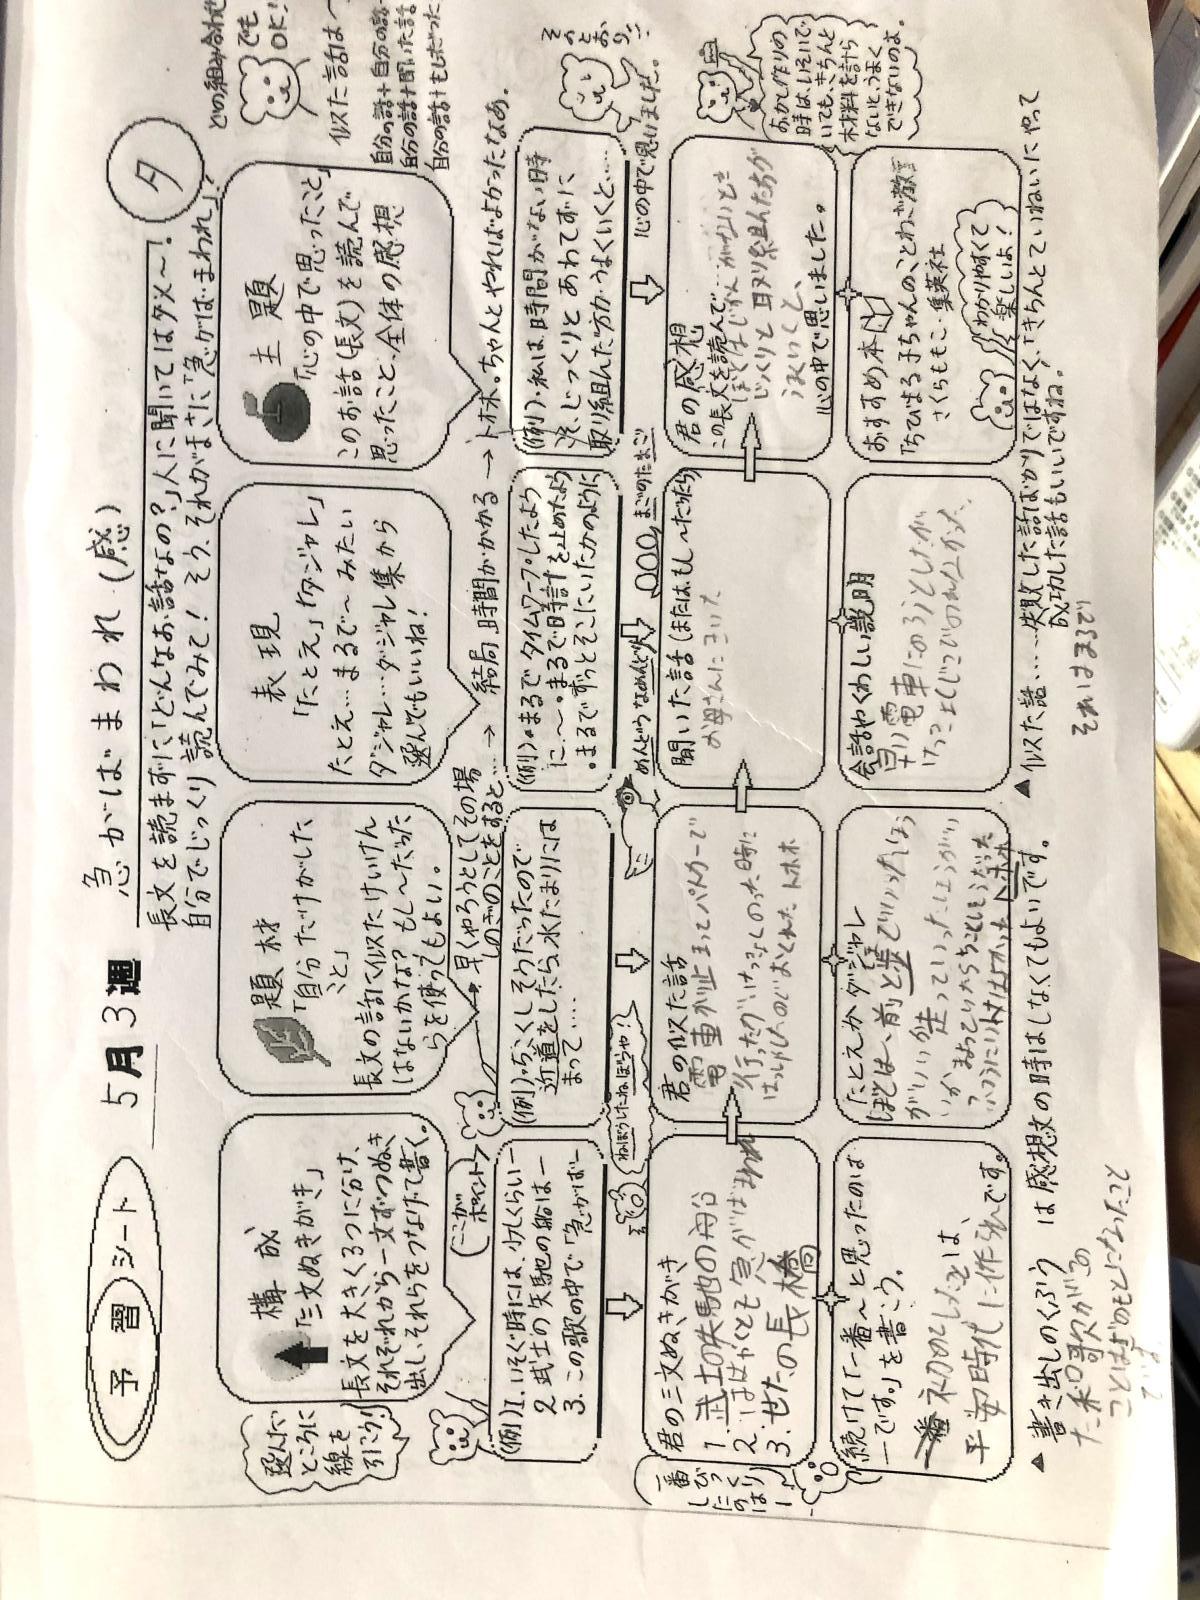 予習シート
5月3週
急がばまわれ(感)
タ
長文を読まずに「どんなお話なの?」人に聞いてはダメ~!
自分でじっくり読んでみて!そう、それがまさに「急がば・まわれ」!
どの組み合わせ
でも
OK!
似た話は~
自分の話+自分の話
自分の話+聞いた話
自分の話+もしだった
選んだ
ところに
線を
引こう!
構成
「三文ぬきがき」
長文を大きく3つに分け、
それぞれから一文ずつぬき
出し、それらをつなげて書く。
題材
「自分だけがした
こと」
長文の話に似たけいけん
はないかな?もし~だった
らを使ってもよい。
表現
「たとえ」「ダジャレ」
たとえ…まるで~みたい
ダジャレ…ダジャレ集から
選んでもいいね!
主題
「心の中で思ったこと」
このお話(長文)を読んで
思ったこと、全体の感想
ここが
ポイント
早くやろうとしてその場
しのぎのことをすると…
→ 結局、時間がかかる → トホホ。ちゃんとやればよかったなあ。
(例)1.いそぐ時には、少しくらいー
2.武士の矢馳の船はー
3.この歌の中で「急がばー
(例)・ちこくしそうだったので
近道をしたら、水たまりには
まって……
(例)・まるでタイムワープしたよう
に~~・まるで時計を止めたよう
・まるでずっとそこにいたかのように
(例)・私は、時間がない時
こそ、じっくりとあわてずに
取り組んだ方がうまくいくと……
そのとおり!!
ねぼうしたねぼうや!
めんどうなめんどり
まごのたまご
心の中で思いました。
君の三文ぬきがき
1.武士の矢馳の舟谷
2.ははやくとも急がばまわれ
3.せたの長橋
君の似た話
電車が止まってバスかカーで
トホホ
聞いた話(または、もし~だったら)
お母さんにきいた
君の感想
この長文を読んで…
じっくりと取り組んだ方が
うまくいくと、
心の中で思いました。
一番びっくりしたのはー!
続けて「一番~と思ったのは
ーです。」を書こう。
平安時代に作られです。
たとえかダジャレ
会話やくわしい説明
早い電車にのろうとしたが
おすすめ本
「ちびまる子ちゃんの、ことわざ教室」
さくらももこ・集英社
わかりやすくて
楽しいよ!
おかし作りの
時は、いそいで
いても、きちんと
材料を計ら
ないと、うまく
できないのよ。
▲書き出しのくふう は感想文の時はしなくてもよいです。
▲似た話……失敗した話ばかりではなく、「きちんとていねいにやって
成功した話もいいですね。
それはまるで